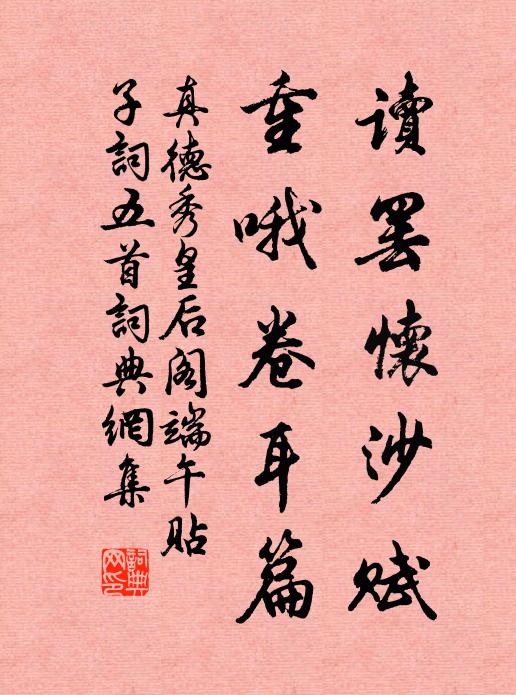 讀罷懷沙賦
重哦卷耳篇
真德秀皇后阁端午貼
子詞五首詞典網集
詞典
网印